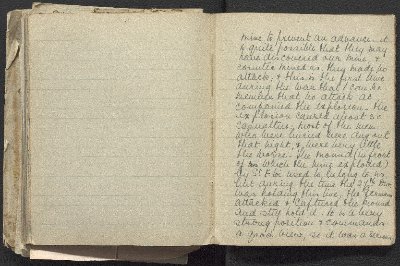 mine to prevent an advance. it
is quite possible that they may
have discovered our mine &
counter mined us. they made no
attack, & this is the first time
during the war that I can re
member that no attack ac
companied the explosion. the
explosion caused about 30
casualties, most of the men
who were buried were dug out
that night, & were very little
the worse. The mound (in front
of which the mine exploded)
by St E used to belong to us
but during the time the 27th Div
was holding this line, the Germans
attacked & captured the mound
and still hold it. It is a very
strong position & commands
a good view, so it was a serious